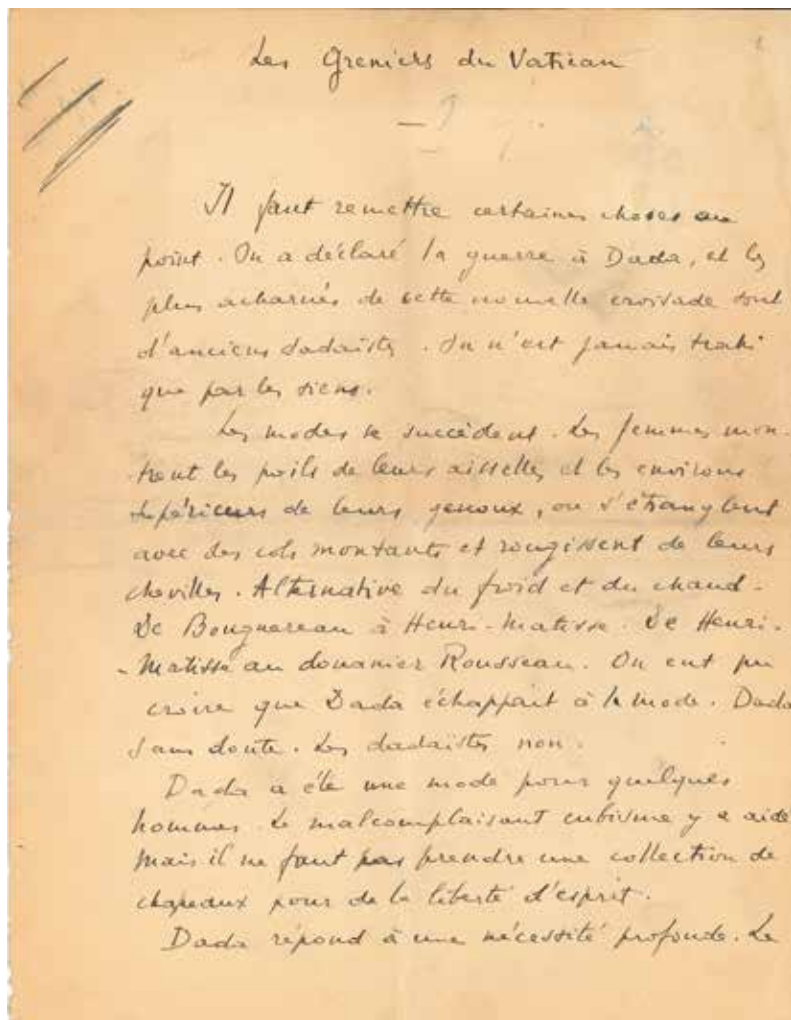 Les Greniers du Vatican
Il faut remettre certaines choses au
point. On a déclaré la guerre à Dada, et les
plus acharnés de cette nouvelle croisade sont
d'anciens dadaïstes. On n'est jamais trahi
que par les siens.
Les modes se succèdent. Les femmes mon-
trent les poils de leurs aisselles et les environs
supérieurs de leurs genoux, ou s'étranglent
avec des cols montants et rougissent de leurs
chevilles. Alternative du froid et du chaud.
De Bouguereau à Henri-Matisse. De Henri-
-Matisse au douanier Rousseau. On eut pu
croire que Dada échappait à la mode. Dada
sans doute. Les dadaïstes non.
Dada a été une mode pour quelques
hommes. Le malcomplaisant cubisme y a aidé
Mais il ne faut pas prendre une collection de
chapeaux pour de la liberté d'esprit.
Dada répond à une nécessité profonde. Le